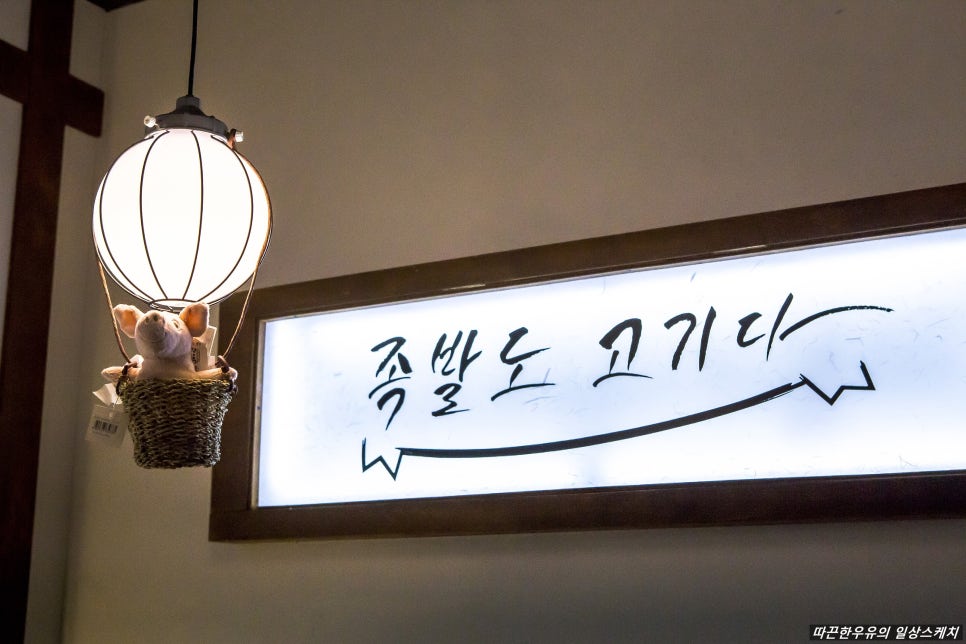 족발도 고기다
따끈한우유의 일상스케치